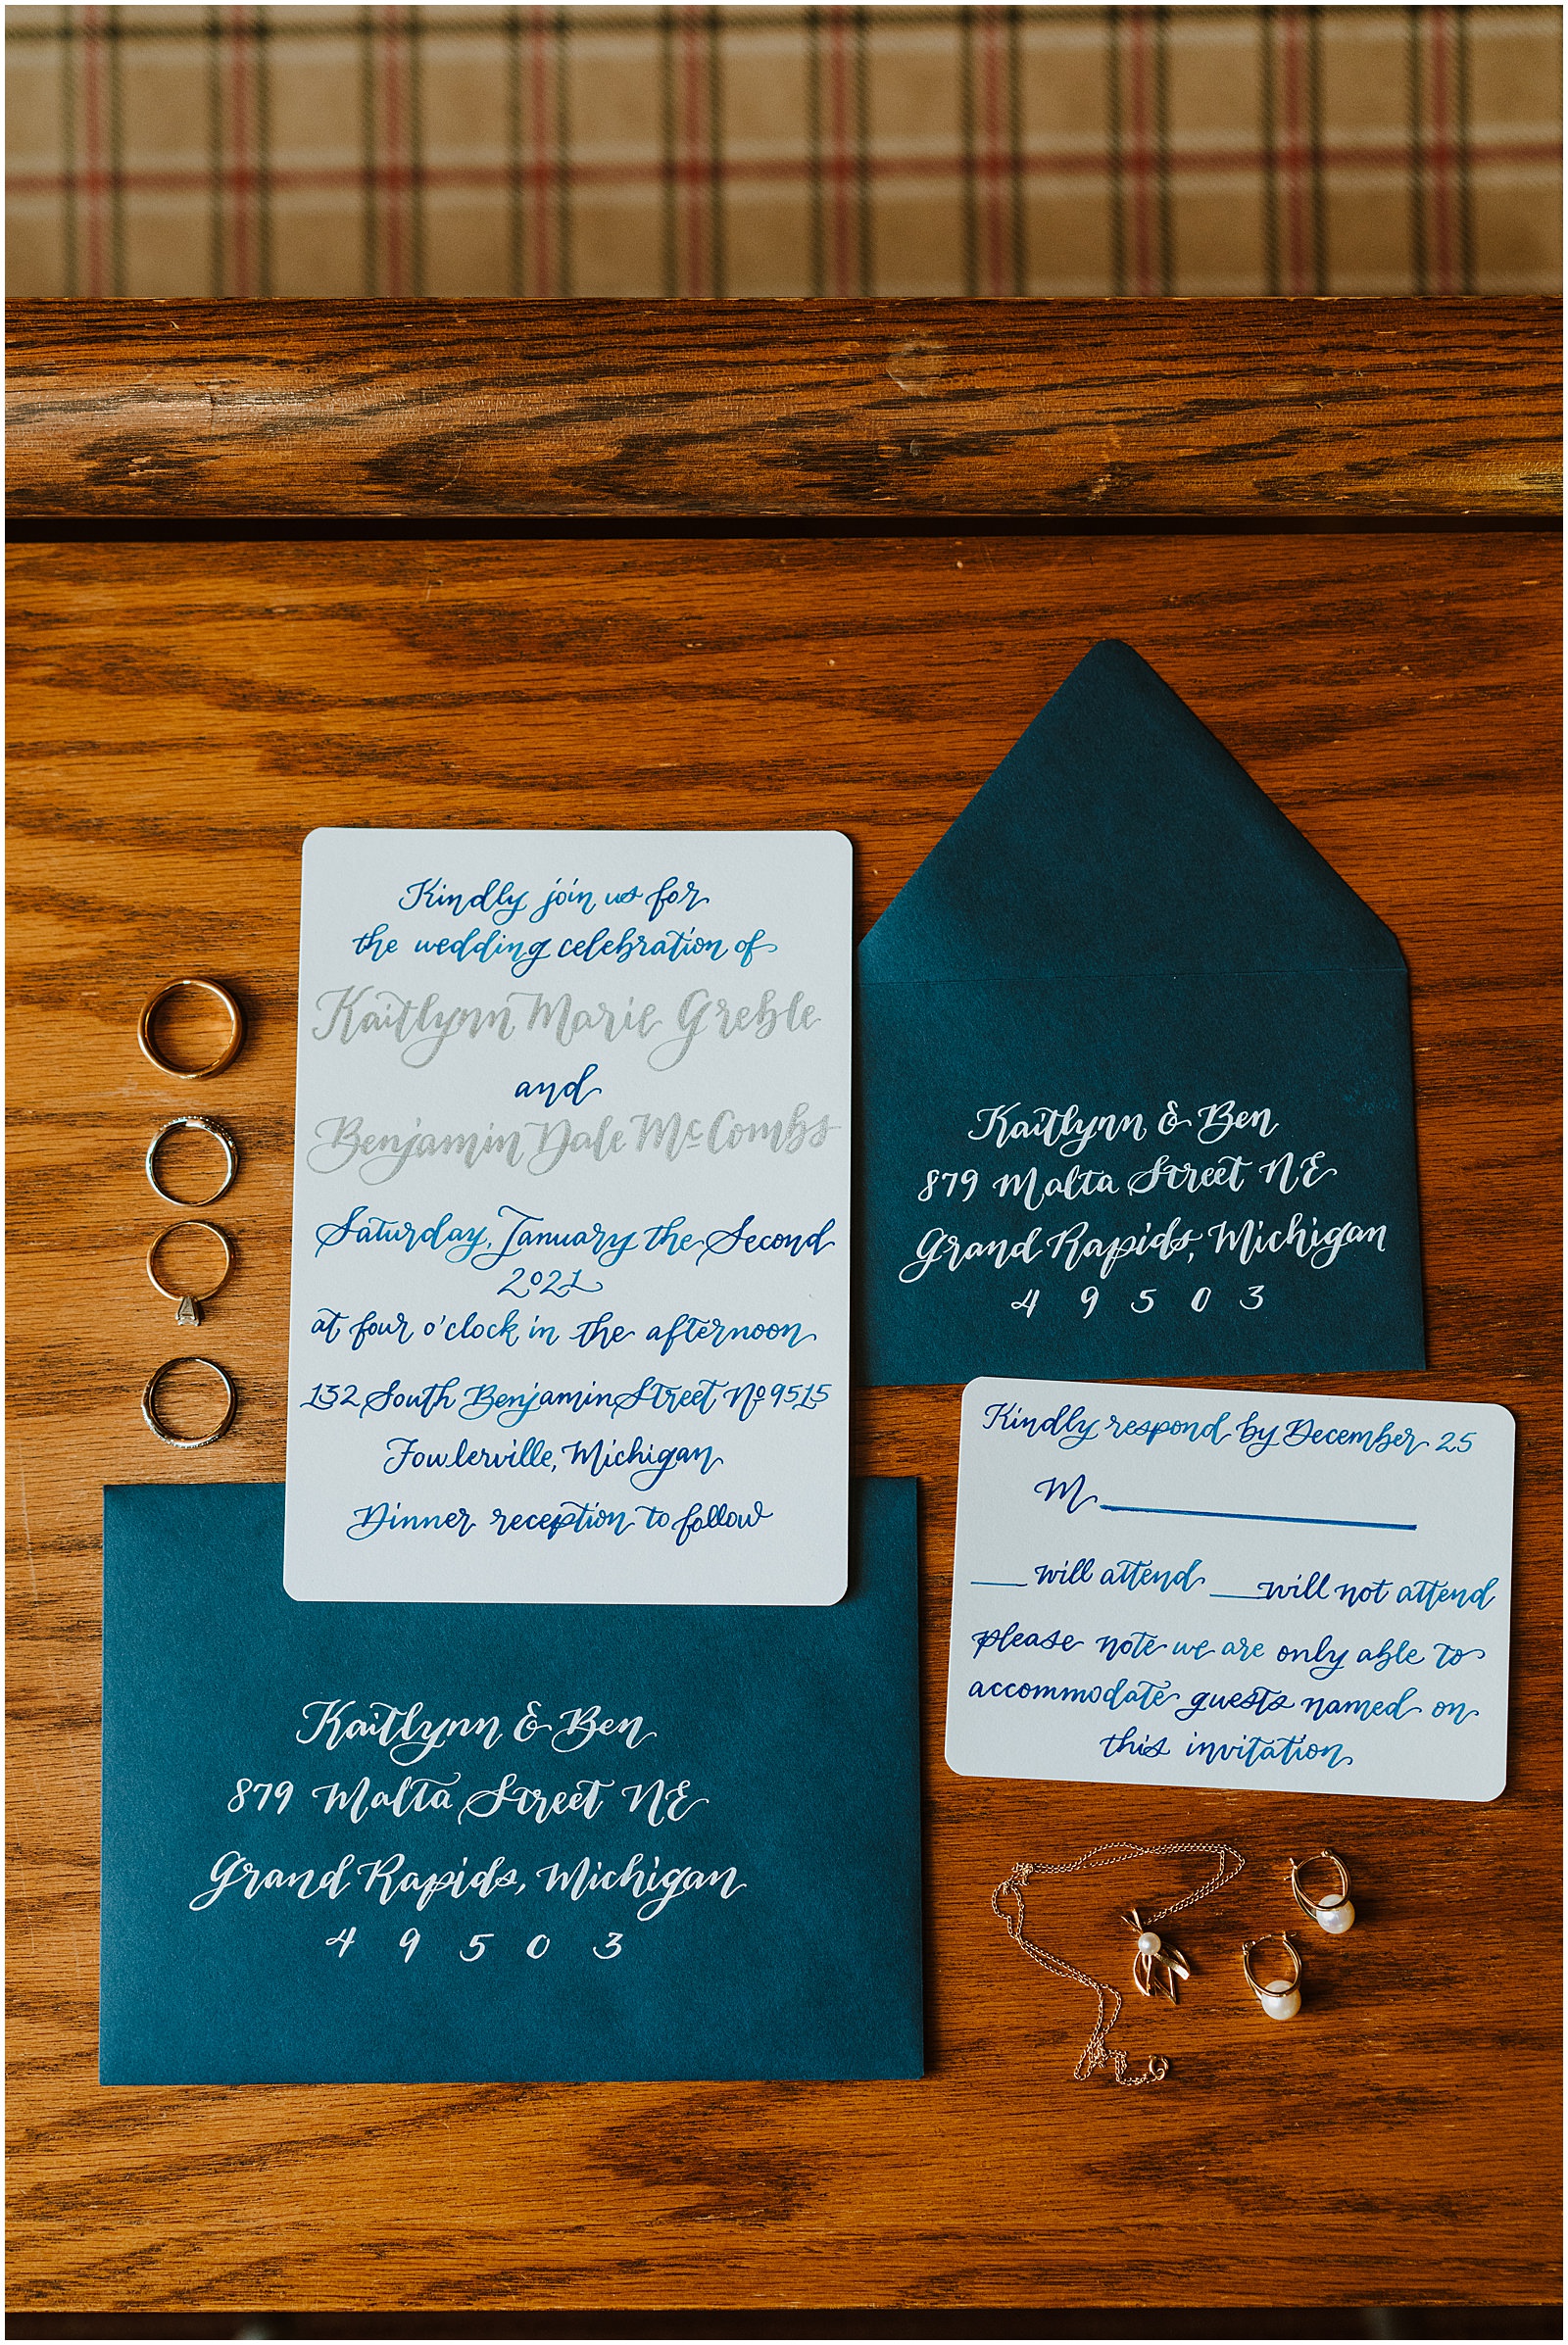 Kindly join us for
the wedding celebration of
Kaitlynn Marie Greble
and
Benjamin Dale McCombs
Saturday, January the Second
2021
at four o'clock in the afternoon
132 South Benjamin Street No 9515
Fowlerville, Michigan
Dinner reception to follow
Kaitlynn & Ben
879 Malta Street NE
Grand Rapids, Michigan
4 9 5 0 3
Kindly respond by December 25
M
will attend will not attend
please note we are only able to
accommodate guests named on
this invitation
Kaitlynn & Ben
879 Malta Street NE
Grand Rapids, Michigan
4 9 5 0 3